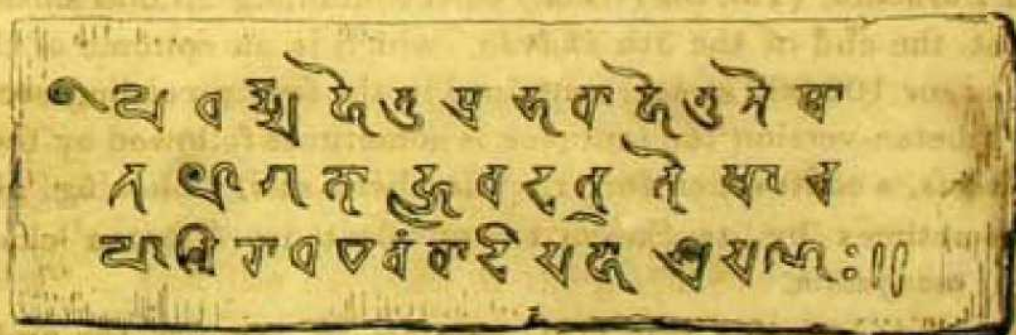 ये धर्म्मा हेतु प्रभवा हेतुं तेषां
तथागत ह्यवदत् तेषां च
यो निरोध एवं वादि महाश्रमणः॥